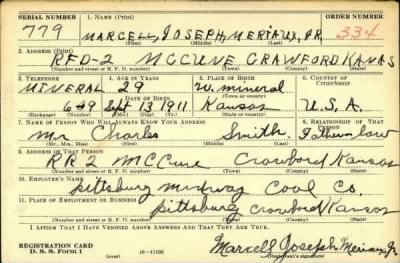 SERIAL NUMBER 1. NAME (Print) ORDER NUMBER
779 MARCELL, JOSEPH, MERIAUX, JR 334
(First) (Middle) (Last)
2. ADDRESS (Print)
RFD-2 MCCUNE CRAWFORD KANAS
(Number and street or R. F. D. number) (Town) (County) (State)
3. TELEPHONE 4. AGE IN YEARS 5. PLACE OF BIRTH 6. COUNTRY OF CITIZENSHIP
MINERAL 29 W. mineral
(Town or county)
6-9 Sept 13 1911 Kansas U.S.A.
(Exchange) (Number) (Mo.) (Day) (Yr.) (State or country)
7. NAME OF PERSON WHO WILL ALWAYS KNOW YOUR ADDRESS 8. RELATIONSHIP OF THAT PERSON
Mr Charles Smith. Fatherinlow
(Mr., Mrs., Miss) (First) (Middle) (Last)
9. ADDRESS OF THAT PERSON
RR 2 McCune Crawford Kansas
(Number and street or R. F. D. number) (Town) (County) (State)
10. EMPLOYER'S NAME
pittsburg midway Coal Co.
11. PLACE OF EMPLOYMENT OR BUSINESS
pittsburg crawford Kansas
(Number and street or R. F. D. number) (Town) (County) (State)
I AFFIRM THAT I HAVE VERIFIED ABOVE ANSWERS AND THAT THEY ARE TRUE.
REGISTRATION CARD
D. S. S. Form 1 (over) 16-17105 Marcell Joseph Meriaux Jr
(Registrant's signature)